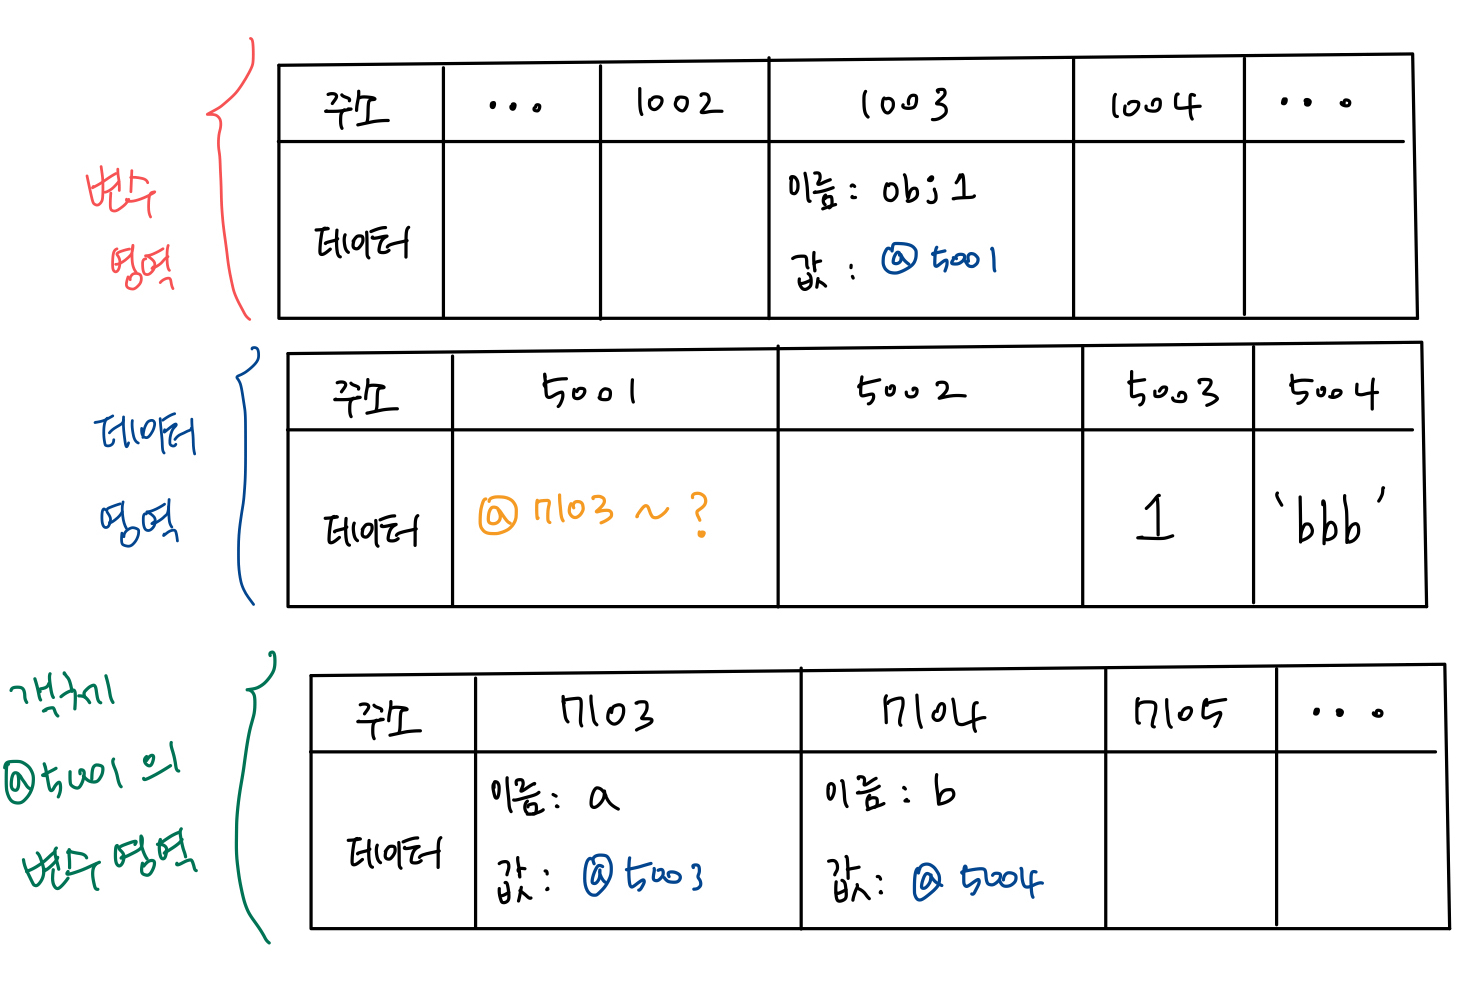 변수
영역
주소 ... 1002 1003 1004 ...
데이터
이름 : obj1
값 : @5001
데이터
영역
주소 5001 5002 5003 5004
데이터 @7103 ~ ? 1 'bbb'
객체
@5001의
변수 영역
주소 7103 7104 7105 ...
데이터
이름 : a 이름 : b
값 : @5003 값 : @5004